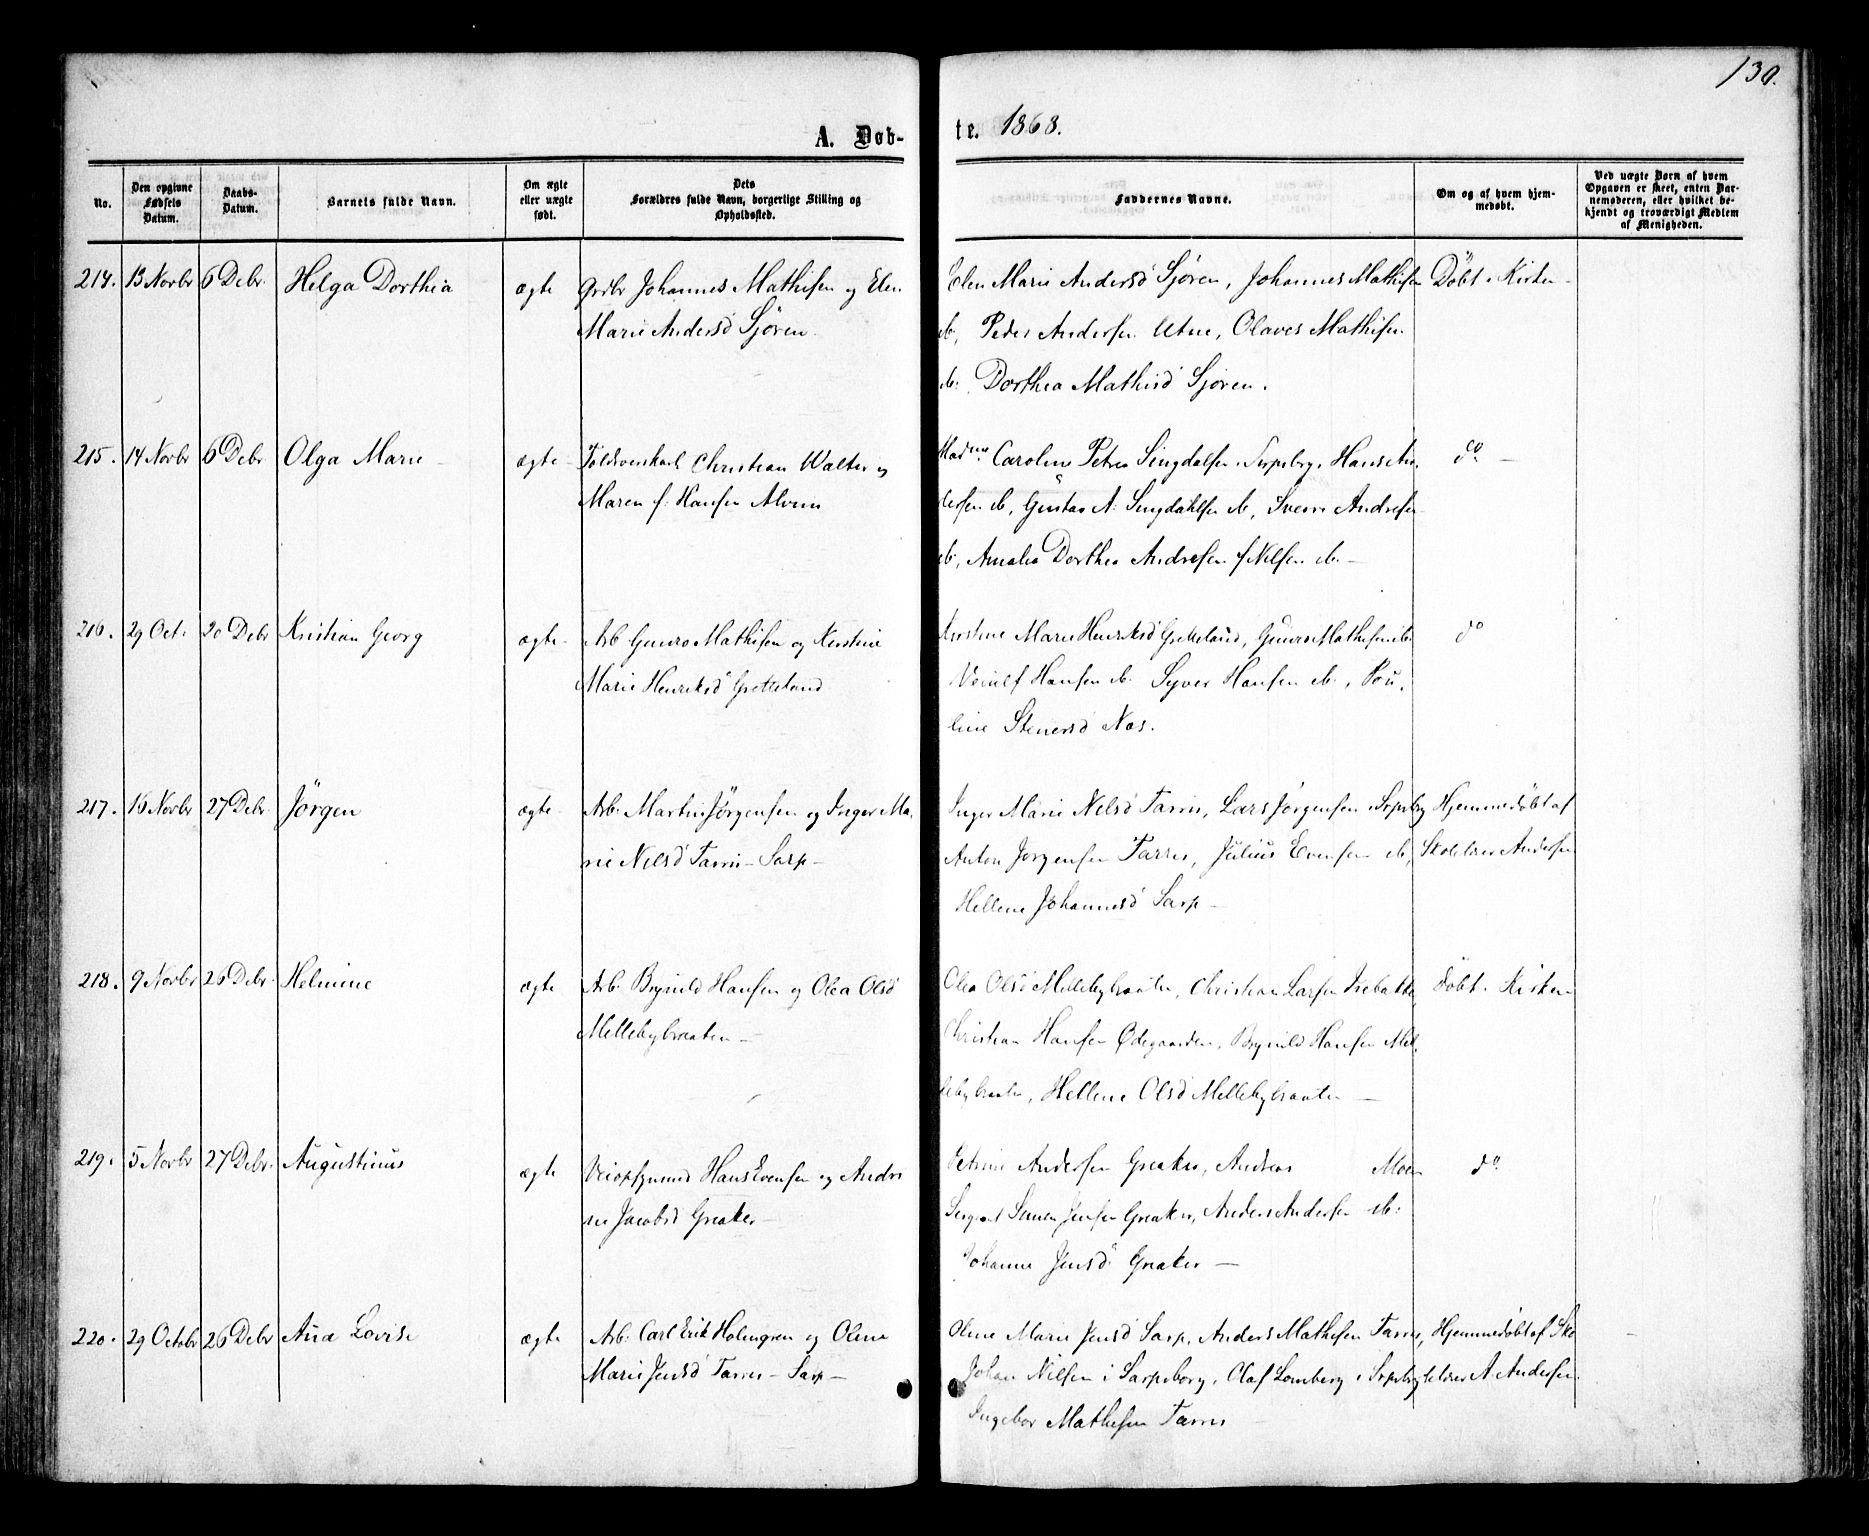 130.
A. Døb-
te. 1868.
No.
Den opgivne Fødsels Datum.
Daabs-Datum.
Barnets fulde Navn.
Om ægte eller uægte født.
Dets Forældres fulde Navn, borgerlige Stilling og Opholdssted.
Faddernes Navne.
Om og af hvem hjemmedøbt.
Ved uægte Børn af hvem Opgaven er skeet, enten Barnemoderen, eller hvilket bekjendt og troværdigt Medlem af Menigheden.
214. 13 Novbr 6 Debr. Helga Dorthia ægte Grdbr Johannes Mathisen og Elen
Marie Andersd Sjøren.
Elen Marie Andersd Sjøren, Johannes Mathisen
ib, Peder Andersen Utne, Olaves Mathisen
ib: Dorthea Mathisd Sjøren.
Döbt i Kirken -
215. 14 Novbr 6 Debr Olga Marie - ægte - Christian Walter og
Maren f: Hansen Alvim
Madme Caroline Petrea Singdalsen i Sarpsborg, Hans An-
dersen ib, Gustav A: Singdahlsen ib, Andresen
ib, Amalia Dorthea Andresen f Nilsen ib. -
do -
216. 29 Oct. 20 Debr Kristian Georg ægte - Arb Mathisen og Kirstine
Marie Henriksd Gretteland
Kirstine Marie Henriksd Gretteland, Mathisen ib.
Hansen ib. Syver Hansen ib, Pau-
line Stenersd Næs.
do
217. 16 Novbr 27 Debr. Jörgen ægte - Arb: Martin Jörgensen og Inger Ma-
rie Nilsd Tarris - Sarp -
Inger Marie Nilsd Tarris, Lars Jörgensen i Srpsbrg
Anton Jorgensen Tarris, Julius Evensen ib,
Hellene Johannesd Sarp -
Hjemmedöbt af
Skolelærer Andersen
218. 9 Novbr 26 Debr. Helmine ægte Arb: Brynild Hansen og Olea Olsd
Mellebybraaten -
Olea Olsd Mellebybraaten, Christian Larsen Isebakke,
Christian Hansen Ødegaarden, Brynild Hansen Mel-
lebybraaten, Hellene Olsd Mellebybraaten -
Döbt i Kirken
219. 5 Novbr 27 Debr. Augustinus ægte Veiopsynsmd Hans Evensen og Andri
ne Jacobsd Greaker -
Petrine Andersen Greaker, Andreas Moen
Sergeant Simen Jensen Greaker, Anders Andersen ib:
Johanne Jensd Greaker -
do.
220. 29 Octobr 26 Debr Ana Lovise ægte Arb: Carl Erik Holmgren og Oline
Marie Jensd Tarris - Sarp -
Oline Marie Jensd Sarp, Anders Mathisen Tarris,
Johan Nilsen i Sarpsborg, Olaf Lomberg i Srpsbrg
Ingebor Mathisen Tarris
Hjemmedöbt af Sko
lelærer A Andersen.